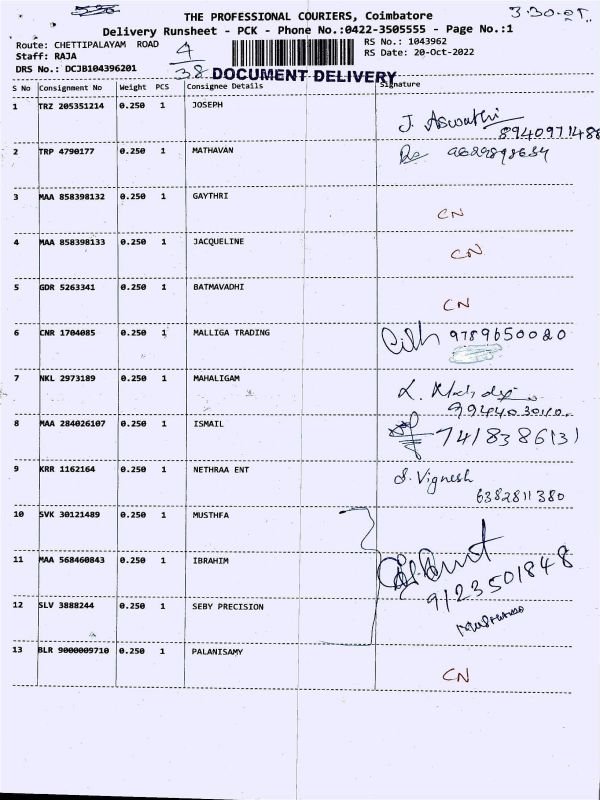 THE PROFESSIONAL COURIERS, Coimbatore
Delivery Runsheet - PCK - Phone No.:0422-3505555 - Page No.:1
Route: CHETTIPALAYAM ROAD
Staff: RAJA
DRS No.: DCJB104396201
4
38
RS No.: 1043962
RS Date: 20-Oct-2022
DOCUMENT DELIVERY
S No Consignment No Weight PCS Consignee Details Signature
1 TRZ 205351214 0.250 1 JOSEPH J. Aswathi
8940971488
2 TRP 4790177 0.250 1 MATHAVAN
3 MAA 858398132 0.250 1 GAYTHRI CN
4 MAA 858398133 0.250 1 JACQUELINE CN
5 GDR 5263341 0.250 1 BATMAVADHI CN
6 CNR 1704085 0.250 1 MALLIGA TRADING 9789650020
7 NKL 2973189 0.250 1 MAHALIGAM
8 MAA 284026107 0.250 1 ISMAIL 7418386131
9 KRR 1162164 0.250 1 NETHRAA ENT S. Vignesh
6382811380
10 SVK 30121489 0.250 1 MUSTHFA
11 MAA 568460843 0.250 1 IBRAHIM 9123501848
12 SLV 3888244 0.250 1 SEBY PRECISION
13 BLR 9000009710 0.250 1 PALANISAMY CN